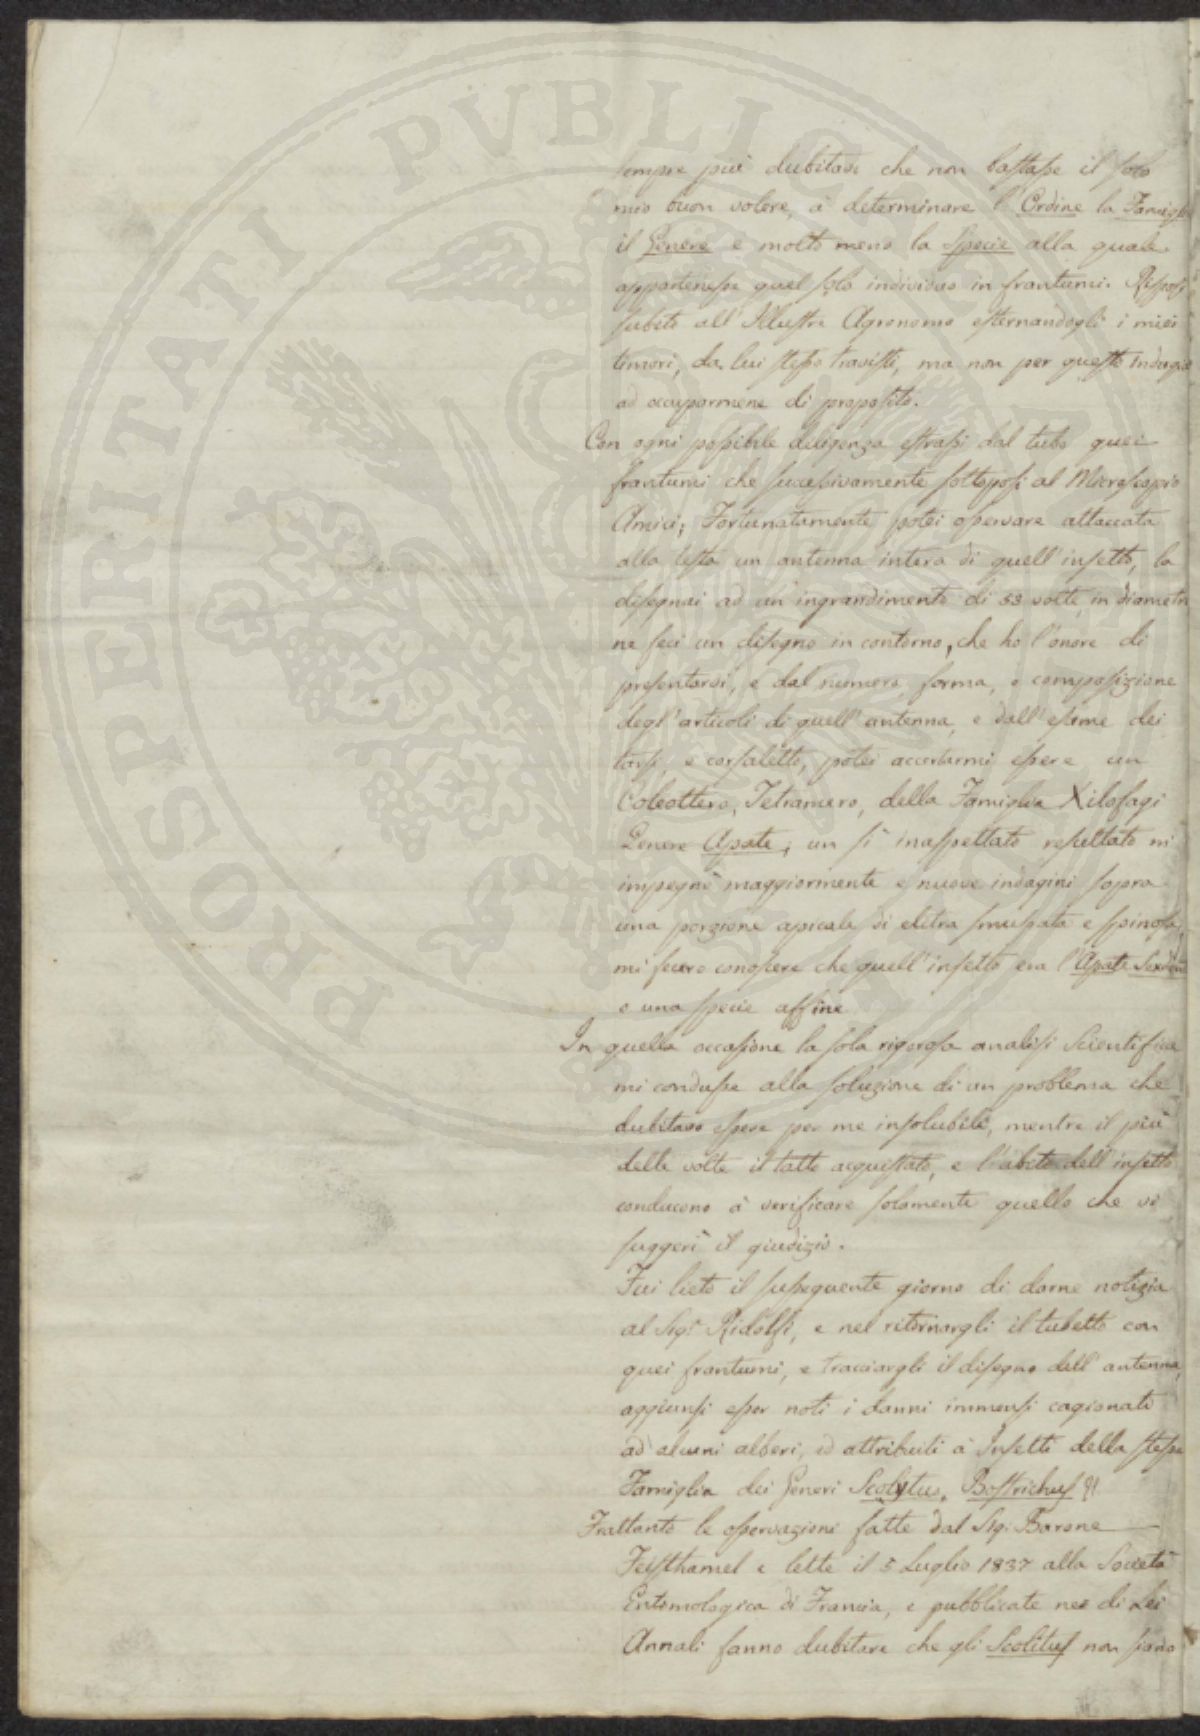 sempre più dubitavi che non bastasse il solo
mio buon volere, a determinare l'Ordine la Famiglia
il Genere e molto meno la Specie alla quale
appartenesse quel solo individuo in frantumi. Risposi
subito all'Illustre Agronomo esternandogli i miei
timori, da lui stesso travisti, ma non per questo indugiò
ad occuparmene di proposito.
Con ogni possibile deligenza estrassi dal tubo quei
frantumi che successivamente sottoposi al Microscopio
Amici; Fortunatamente potei osservare attaccata
alla testa un antenna intera di quell'insetto, la
disegnai ad un'ingrandimento di 53 volte, in diametro
ne feci un disegno in contorno, che ho l'onore di
presentarvi, e dal numero, forma, e composizione
degl'articoli di quell'antenna, e dall'esame dei
tarsi, e corsaletto, potei accertarmi essere un
Coleottero, Tetramero, della Famiglia Xilofagi
Genere Apate; un sì inaspettato resultato m'
impegnò maggiormente e nuove indagini sopra
una porzione apicale di elitra smussata e spinosa,
mi fecero conoscere che quell'insetto era l'Apate
o una specie affine
In quella occasione la sola rigorosa analisi Scientifica
mi condusse alla soluzione di un problema che
dubitavo essere per me insolubile, mentre il più
delle volte il tatto acquistato, e l'abito dell'insetto
conducono a verificare solamente quello che vi
suggerì il giudizio.
Fui lieto il susseguente giorno di darne notizia
al Sigr Ridolfi, e nel ritornargli il tubetto con
quei frantumi, e tracciargli il disegno dell'antenna,
aggiunsi esser noti i danni immensi cagionati
ad alcuni alberi, ed attribuiti a Insetti della stessa
Famiglia dei Generi Scolytus, Bostrichus
Frattanto le osservazioni fatte dal Sig: Barone
Feisthamel e lette il 5 Luglio 1837 alla Società
Entomologica di Francia, e pubblicate nei di Lei
Annali fanno dubitare che gli Scolitus non siano
PROSPERITATI PVBLICAE